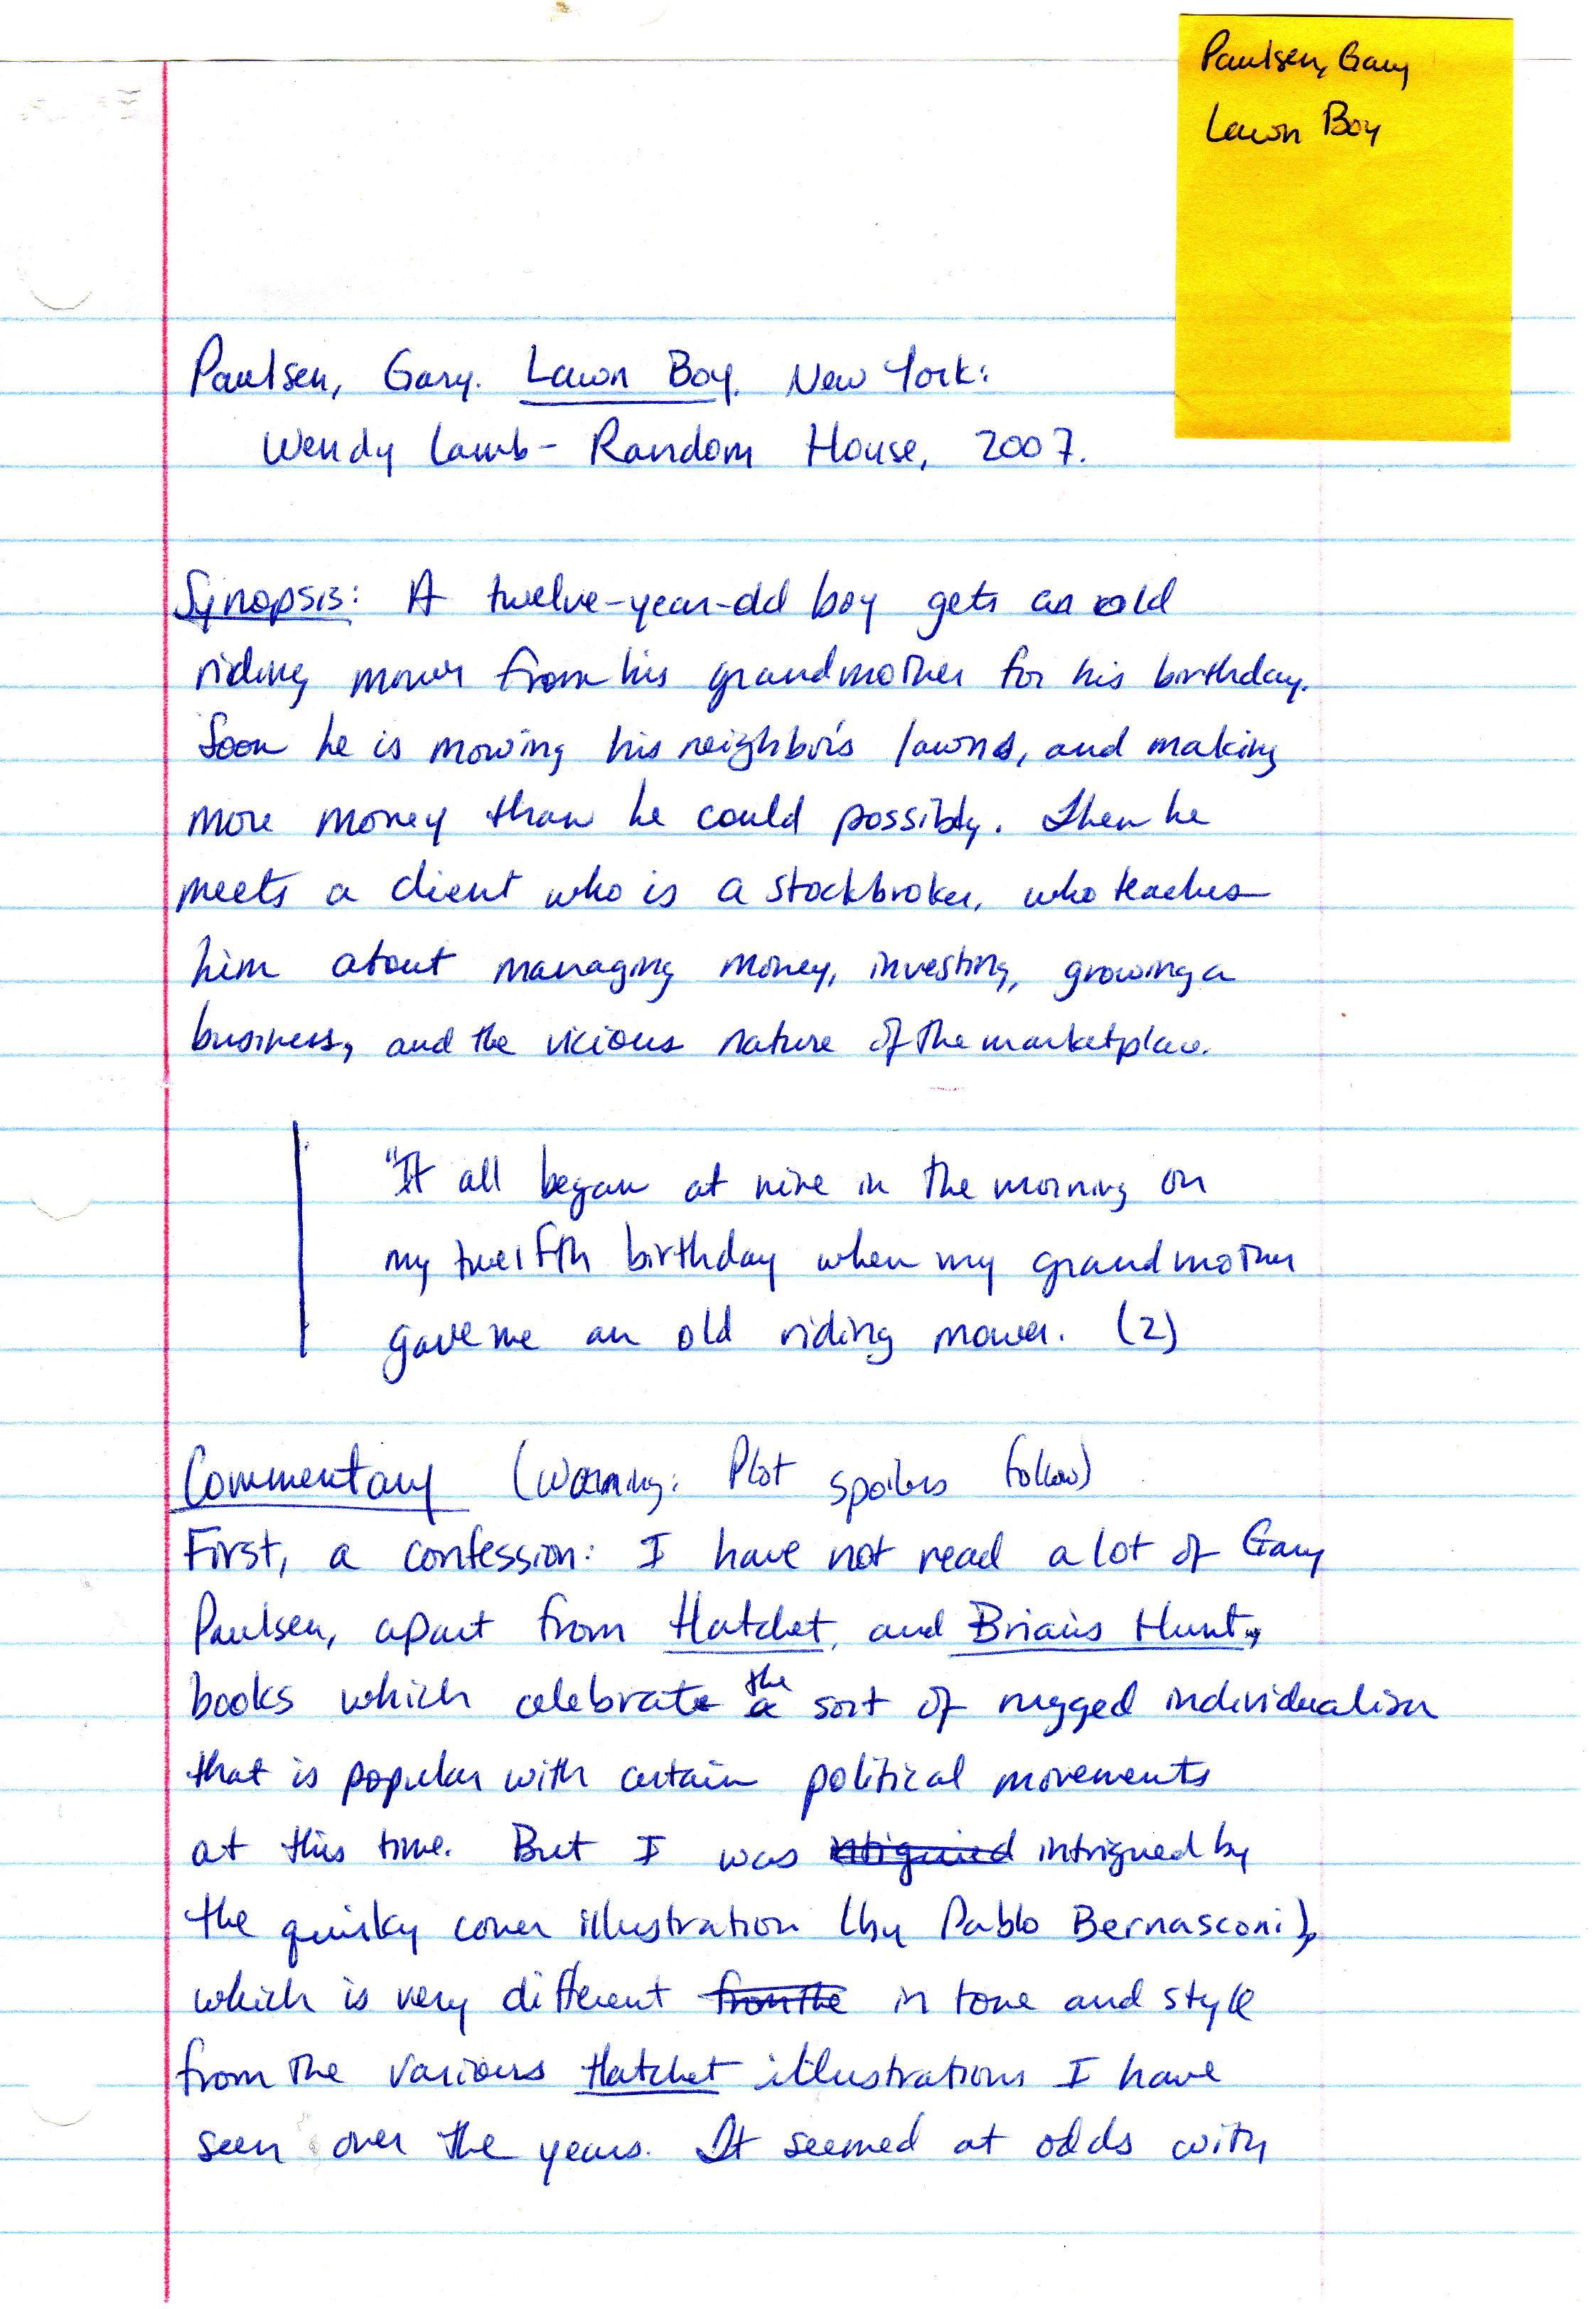 Paulsen, Gary
Lawn Boy
Paulsen, Gary. Lawn Boy. New York:
Wendy Lamb - Random House, 2007.
Synopsis: A twelve-year-old boy gets an old
riding mower from his grandmother for his birthday.
Soon he is mowing his neighbor's lawns, and making
more money than he could possibly. Then he
meets a client who is a stockbroker, who teaches
him about managing money, investing, growing a
business, and the vicious nature of the marketplace.
"It all began at nine in the morning on
my twelfth birthday when my grandmother
gave me an old riding mower. (2)
Commentary (Warning: Plot spoilers follow)
First, a confession: I have not read a lot of Gary
Paulsen, apart from Hatchet, and Brian's Hunt,
books which celebrate the sort of rugged individualism
that is popular with certain political movements
at this time. But I was intrigued by
the quirky cover illustration (by Pablo Bernasconi),
which is very different from the in tone and style
from the various Hatchet illustrations I have
seen over the years. It seemed at odds with